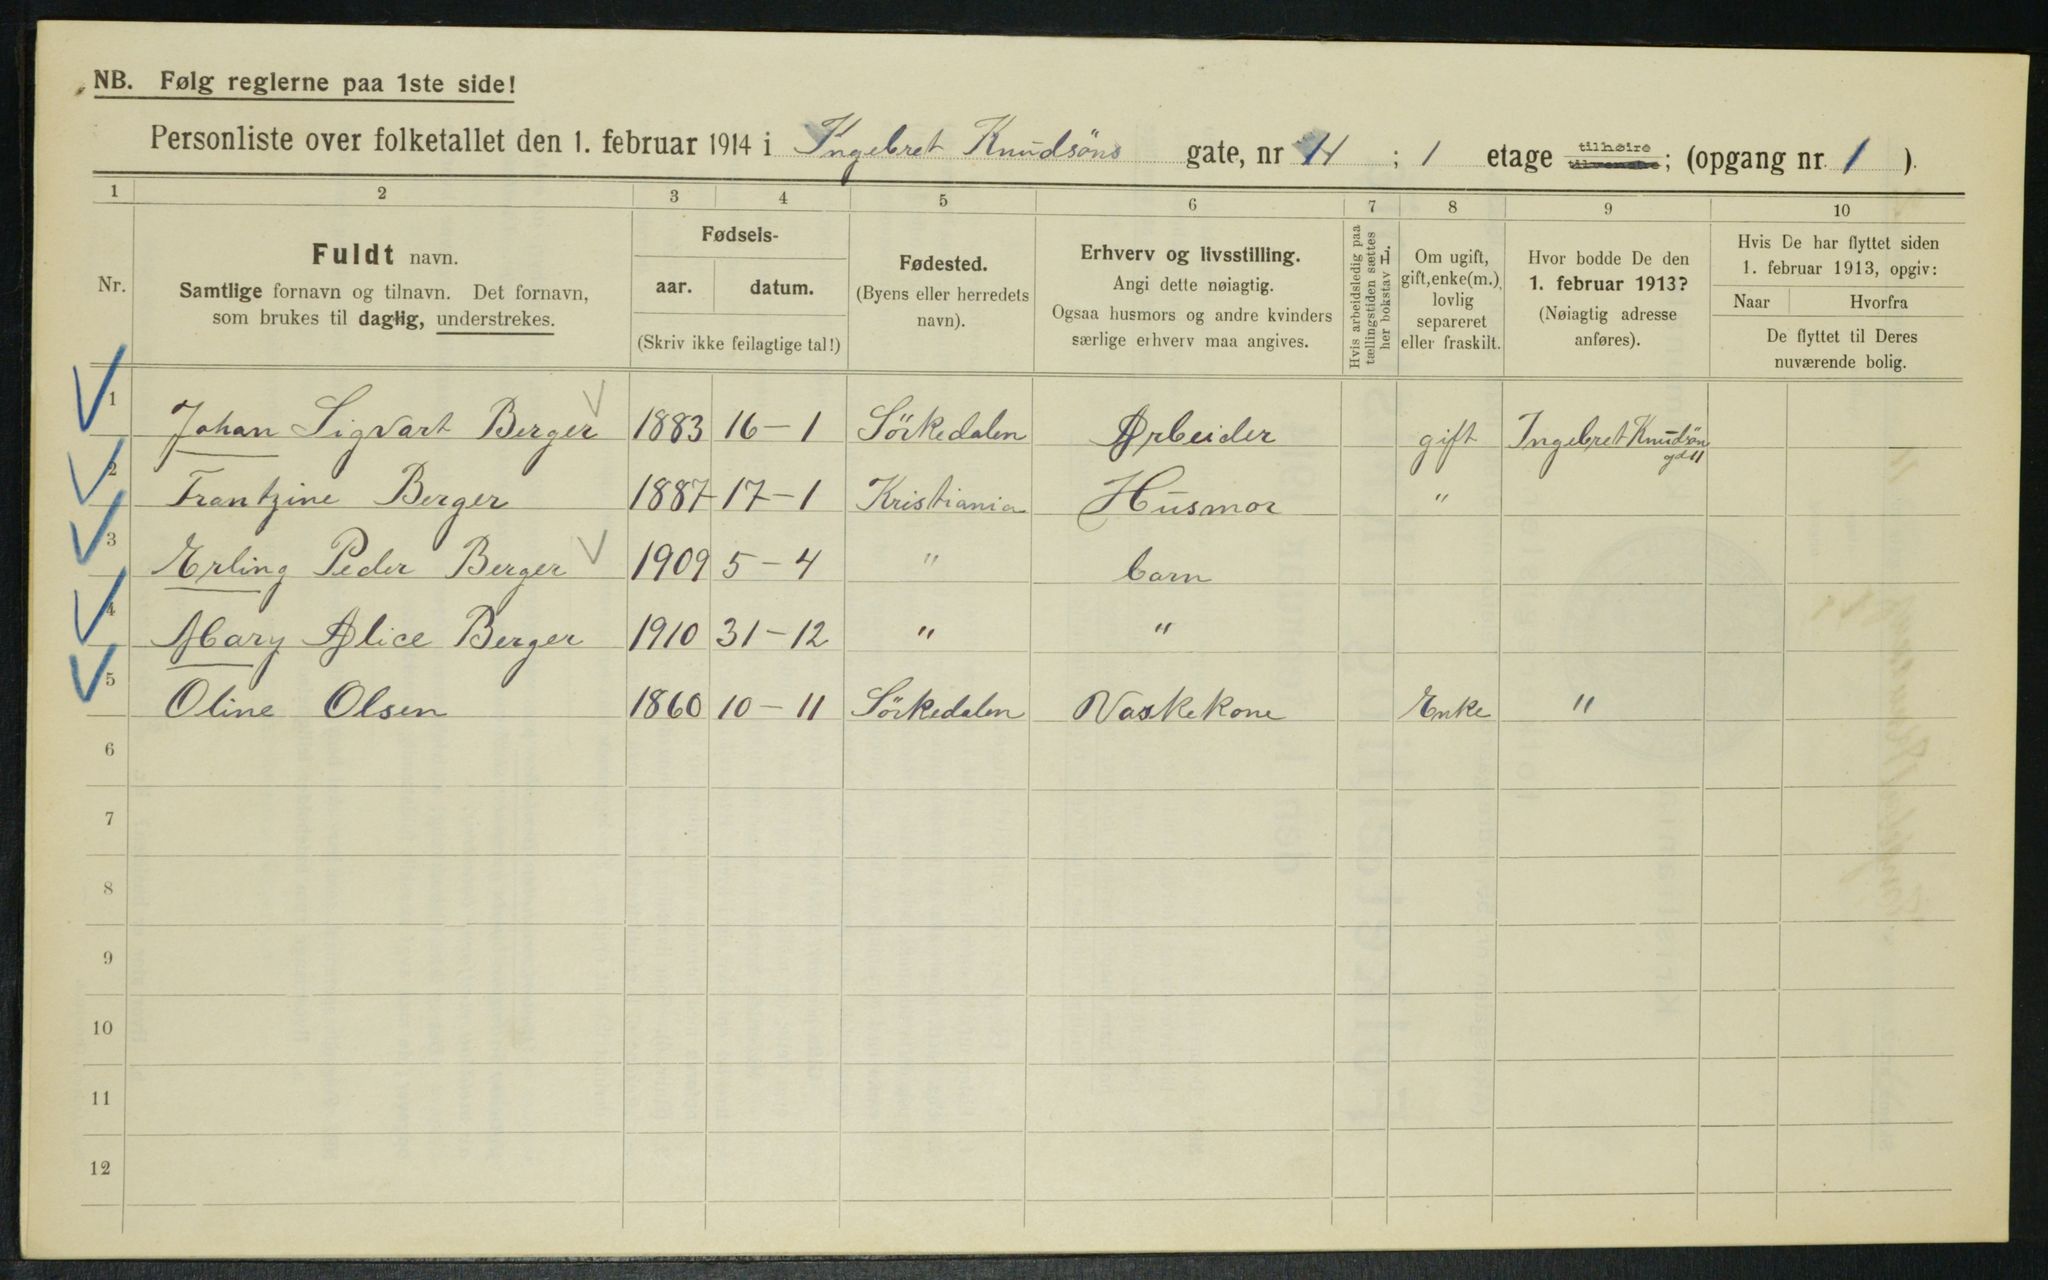 NB. Følg reglerne paa 1ste side!
Personliste over folketallet den 1. februar 1914 i Ingebret Knudsöns gate, nr 11 ; 1 etage tilhøire ; (opgang nr. 1 ).
1 2 3 4 5 6 7 8 9 10
Nr.
Fuldt navn.
Samtlige fornavn og tilnavn. Det fornavn,
som brukes til daglig, understrekes.
Fødsels-
aar. datum.
(Skriv ikke feilagtige tal!)
Fødested.
(Byens eller herredets
navn).
Erhverv og livsstilling.
Angi dette nøiagtig.
Ogsaa husmors og andre kvinders
særlige erhverv maa angives.
Hvis arbeidsledig paa
tællingstiden sættes
her bokstav L.
Om ugift,
gift, enke(m.),
lovlig
separeret
eller fraskilt.
Hvor bodde De den
1. februar 1913?
(Nøiagtig adresse
anføres).
Hvis De har flyttet siden
1. februar 1913, opgiv:
Naar Hvorfra
De flyttet til Deres
nuværende bolig.
1 Johan Sigvart Berger 1883 16-1 Sörkedalen Arbeider gift Ingebret Knudsön
gd 11
2 Frantzine Berger 1887 17-1 Kristiania Husmor "
3 Erling Peder Berger 1909 5-4 " barn
4 Mary Alice Berger 1910 31-12 " "
5 Oline Olsen 1860 10-11 Sörkedalen Vaskekone Enke "
6
7
8
9
10
11
12